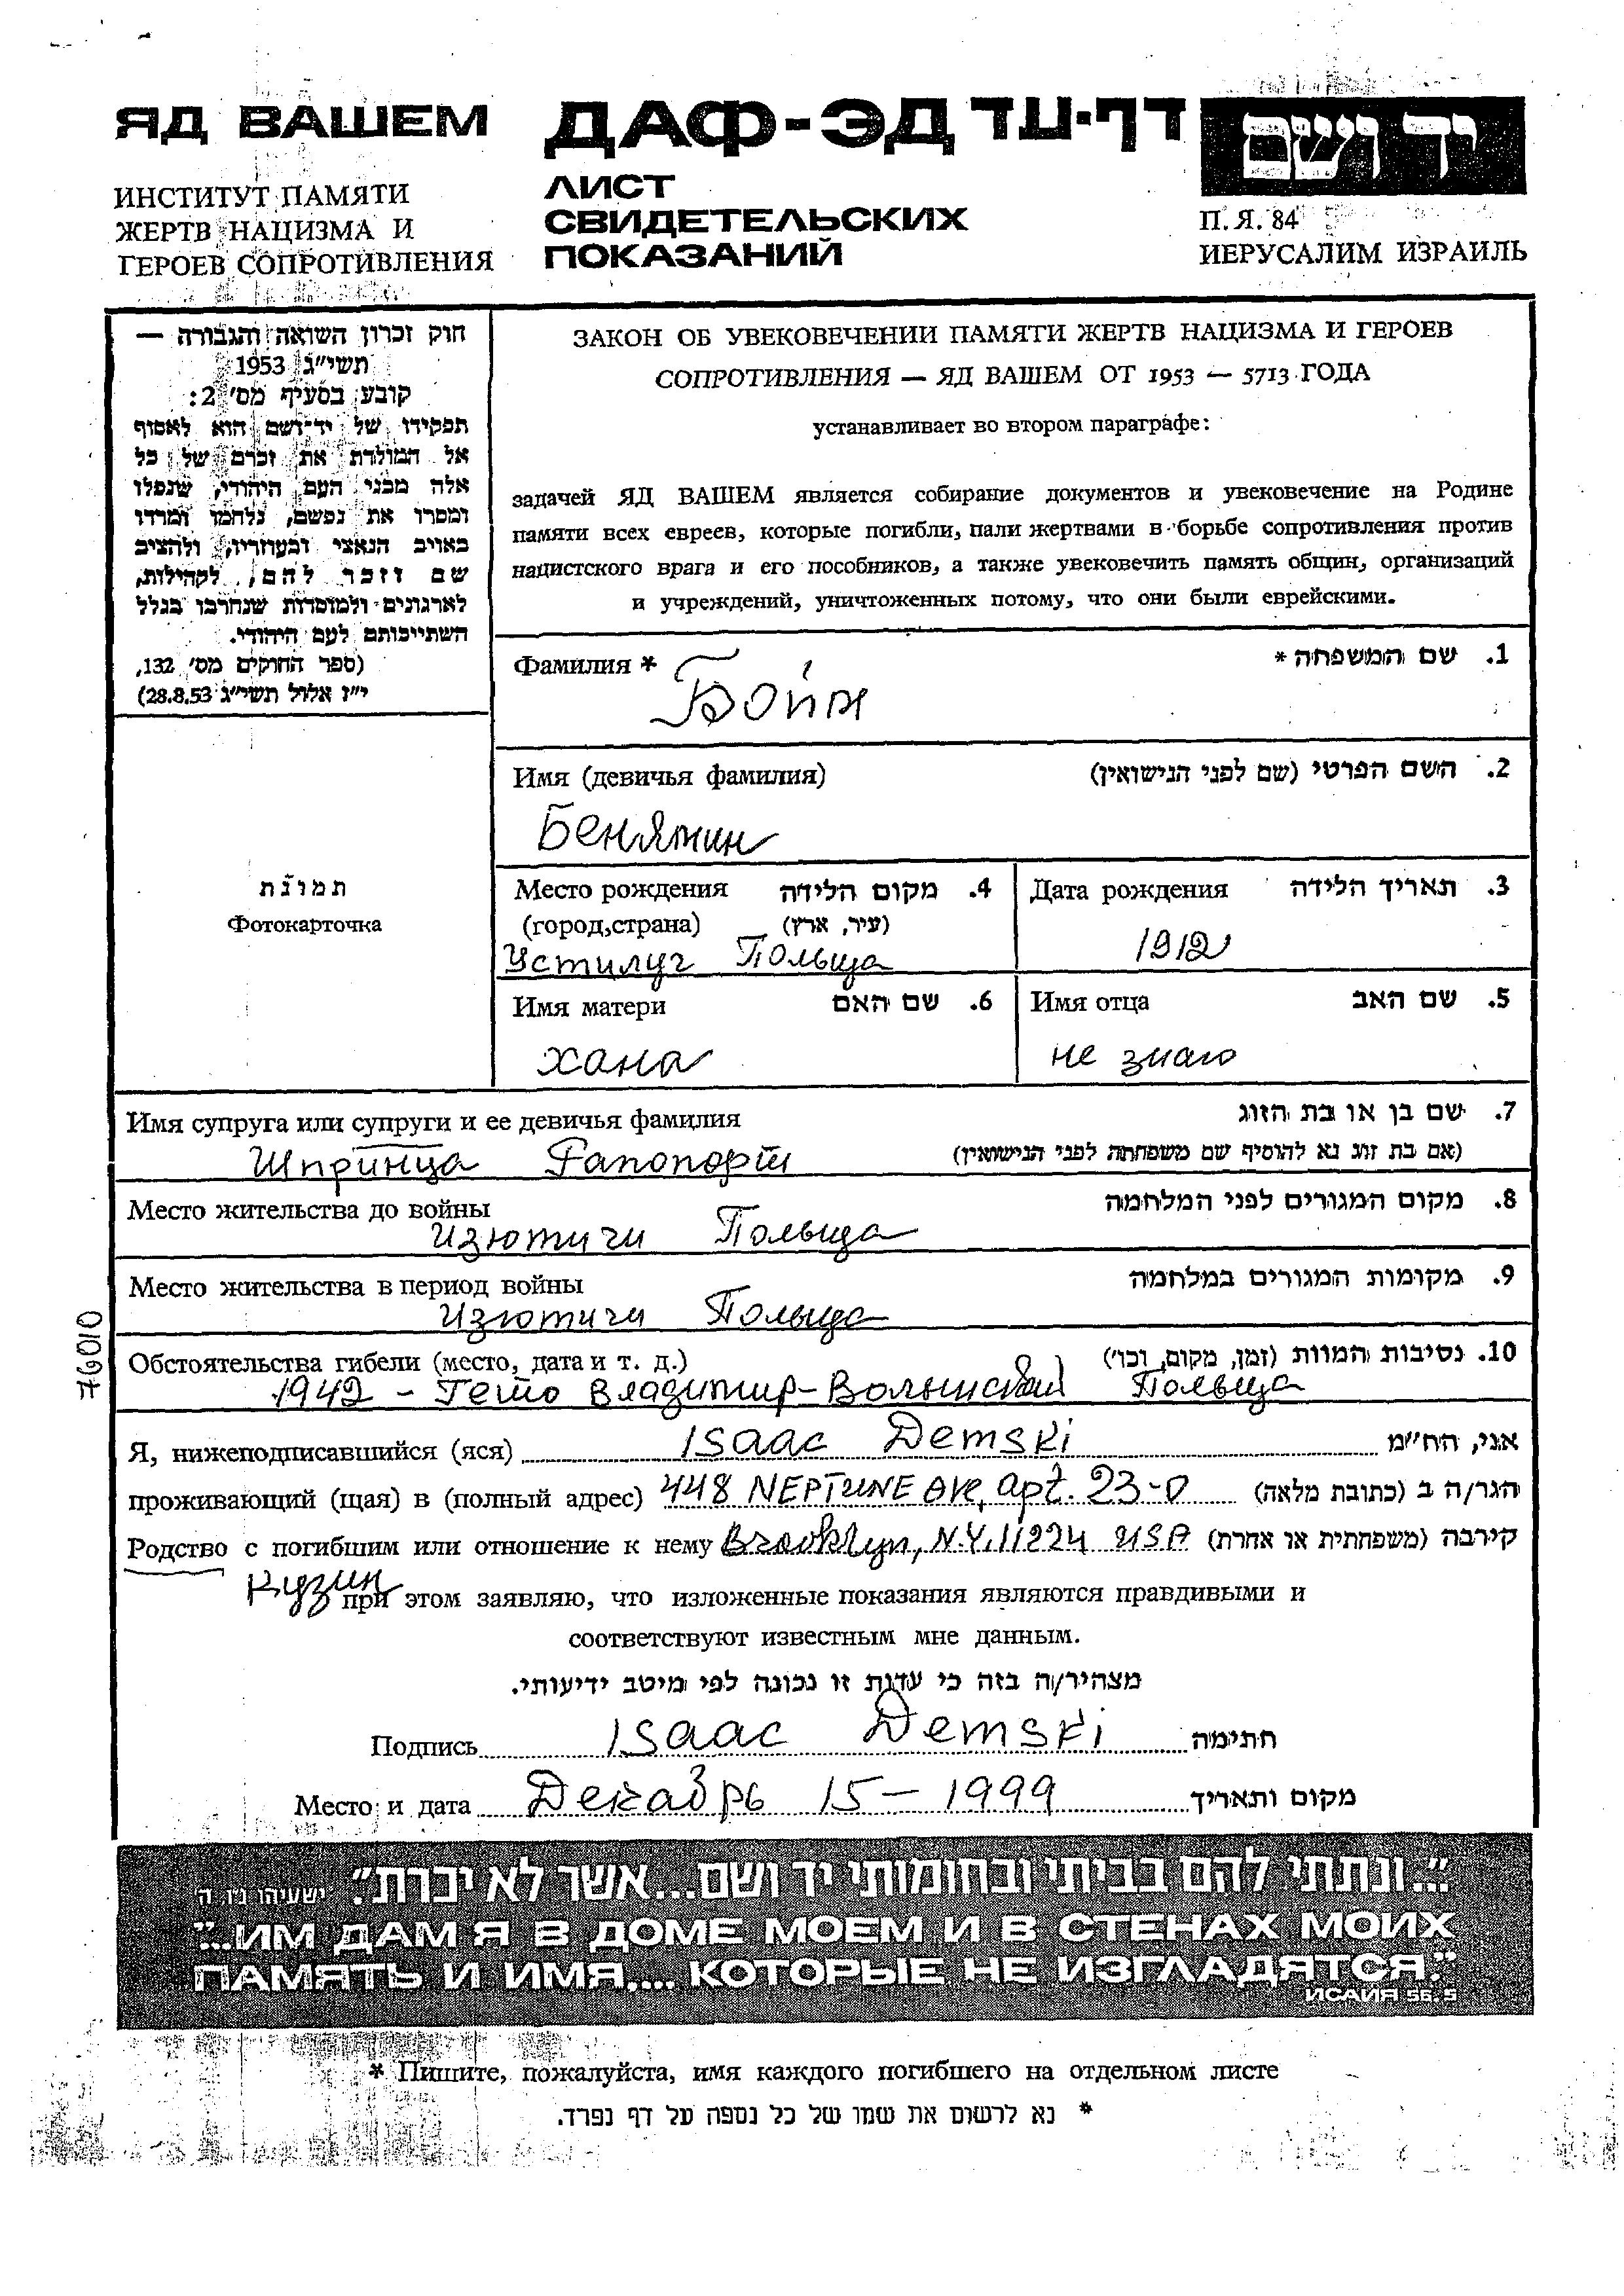 ЯД ВАШЕМ
ИНСТИТУТ ПАМЯТИ
ЖЕРТВ НАЦИЗМА И
ГЕРОЕВ СОПРОТИВЛЕНИЯ
ДАФ-ЭД דף-עד
ЛИСТ
СВИДЕТЕЛЬСКИХ
ПОКАЗАНИЙ
יד ושם
П.Я. 84
ИЕРУСАЛИМ ИЗРАИЛЬ
חוק זכרון השואה והגבורה —
תשי"ג 1953
קובע בסעיף מס' 2:
תפקידו של יד-ושם הוא לאסוף
אל המולדת את זכרם של כל
אלה מבני העם היהודי, שנפלו
ומסרו את נפשם, נלחמו ומרדו
באויב הנאצי ובעוזריו, ולהציב
שם וזכר להם, לקהילות,
לארגונים ולמוסדות שנחרבו בגלל
השתייכותם לעם היהודי.
(ספר החוקים מס' 132,
י"ז אלול תשי"ג 28.8.53)
ЗАКОН ОБ УВЕКОВЕЧЕНИИ ПАМЯТИ ЖЕРТВ НАЦИЗМА И ГЕРОЕВ
СОПРОТИВЛЕНИЯ — ЯД ВАШЕМ ОТ 1953 — 5713 ГОДА
устанавливает во втором параграфе:
задачей ЯД ВАШЕМ является собирание документов и увековечение на Родине
памяти всех евреев, которые погибли, пали жертвами в борьбе сопротивления против
нацистского врага и его пособников, а также увековечить память общин, организаций
и учреждений, уничтоженных потому, что они были еврейскими.
Фамилия * 1. שם המשפחה *
Бойм
Имя (девичья фамилия) 2. השם הפרטי (שם לפני הנישואין)
Бенямин
תמונה
Фотокарточка
Место рождения 4. מקום הלידה
(город,страна) (עיר, ארץ)
Устилуг Польща
Дата рождения 3. תאריך הלידה
1912
Имя матери 6. שם האם
Хана
Имя отца 5. שם האב
не знаю
Имя супруга или супруги и ее девичья фамилия 7. שם בן או בת הזוג
Шпринца Рапопорт (אם בת זוג נא להוסיף שם משפחתה לפני הנישואין)
Место жительства до войны 8. מקום המגורים לפני המלחמה
Изютичи Польща
Место жительства в период войны 9. מקומות המגורים במלחמה
Изютичи Польща
Обстоятельства гибели (место, дата и т. д.) 10. נסיבות המוות (זמן, מקום, וכו')
1942 - Гетто Владимир-Волынский Польща
76010
Я, нижеподписавшийся (яся) Isaac Demski אני, הח"מ
проживающий (щая) в (полный адрес) 448 NEPTUNE AVe, apt. 23-O הגר/ה ב (כתובת מלאה)
Родство с погибшим или отношение к нему Brooklyn, N.Y. 11224 USA קירבה (משפחתית או אחרת)
Кузин
при этом заявляю, что изложенные показания являются правдивыми и
соответствуют известным мне данным.
מצהיר/ה בזה כי עדות זו נכונה לפי מיטב ידיעותי.
Подпись Isaac Demski חתימה
Место и дата Декабрь 15 - 1999 מקום ותאריך
"...ונתתי להם בביתי ובחומותי יד ושם...אשר לא יכרת". ישעיהו נ"ו, ה'
"...ИМ ДАМ Я В ДОМЕ МОЕМ И В СТЕНАХ МОИХ
ПАМЯТЬ И ИМЯ,... КОТОРЫЕ НЕ ИЗГЛАДЯТСЯ."
ИСАИЯ 56.5
* Пишите, пожалуйста, имя каждого погибшего на отдельном листе
* נא לרשום את שמו של כל נספה על דף נפרד.